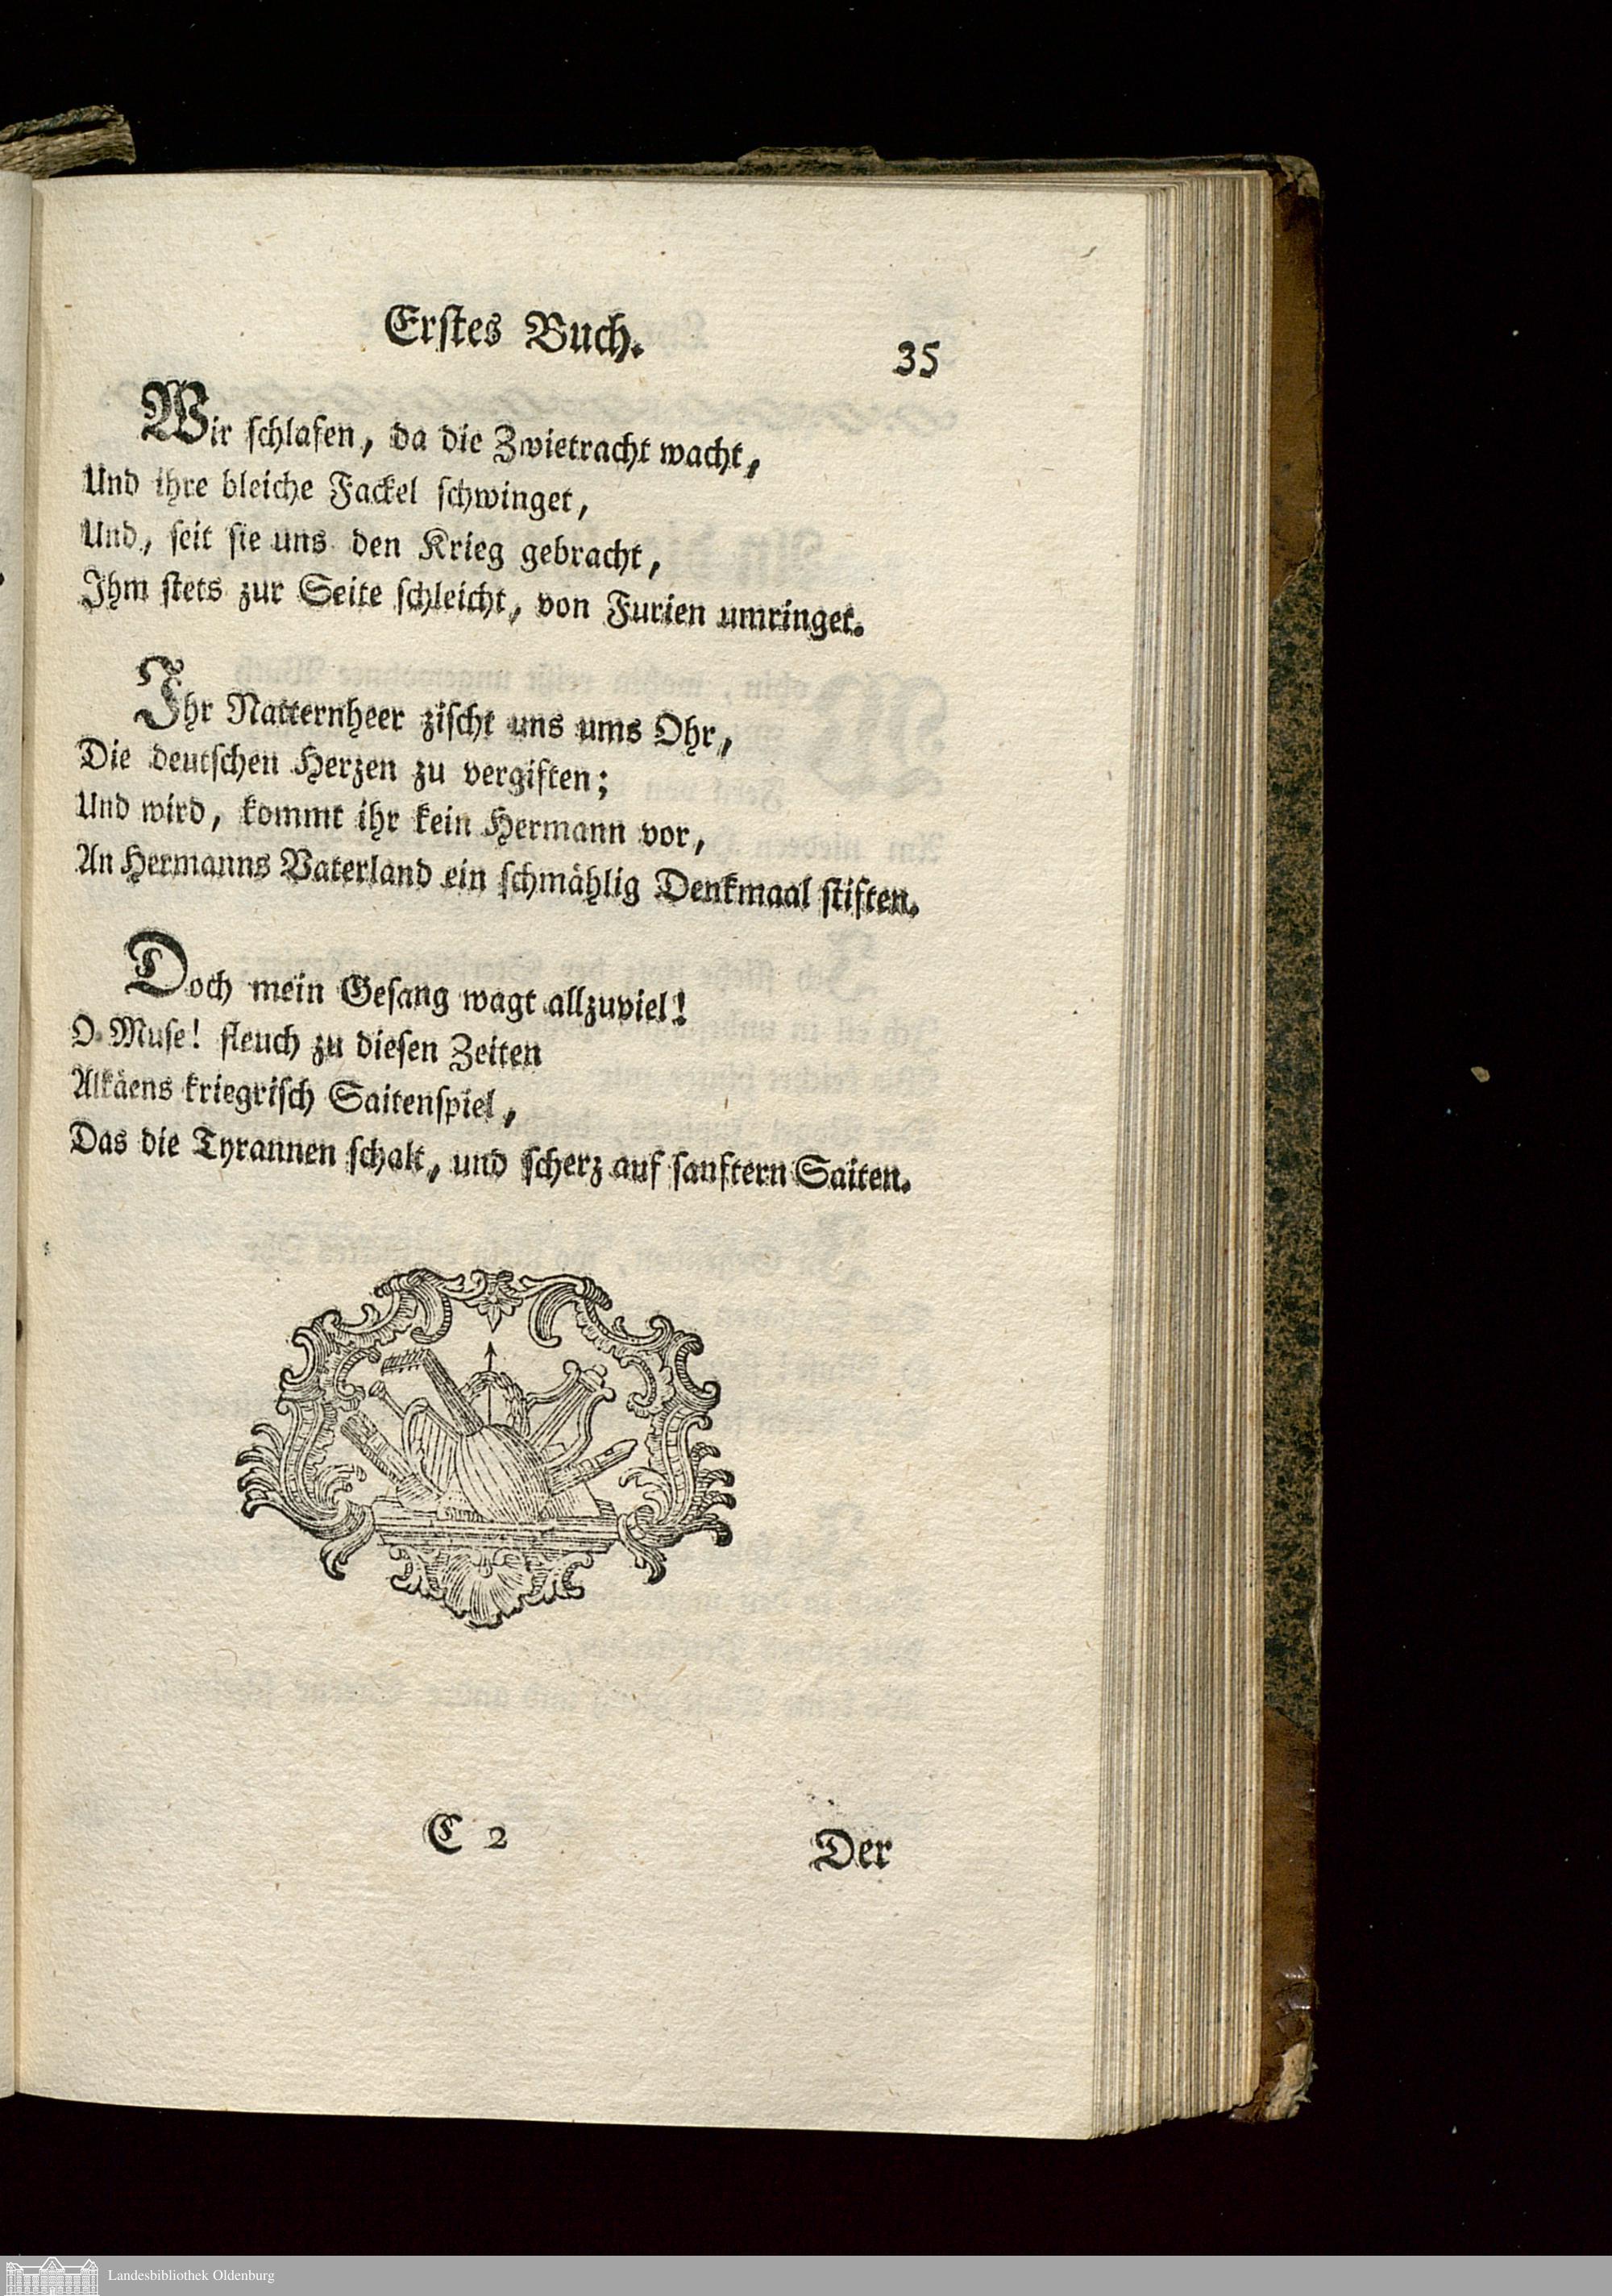 Erstes Buch.
35
Wir schlafen, da die Zwietracht wacht,
Und ihre bleiche Fackel schwinget,
Und, seit sie uns den Krieg gebracht,
Ihm stets zur Seite schleicht, von Furien umringet.
Ihr Natternheer zischt uns ums Ohr,
Die deutschen Herzen zu vergiften;
Und wird, kommt ihr kein Hermann vor,
An Hermanns Vaterland ein schmählig Denkmaal stiften.
Doch mein Gesang wagt allzuviel!
O Muse! fleuch zu diesen Zeiten
Alkäens kriegrisch Saitenspiel,
Das die Tyrannen schalt, und scherz auf sanftern Saiten.
C 2
Der
Landesbibliothek Oldenburg